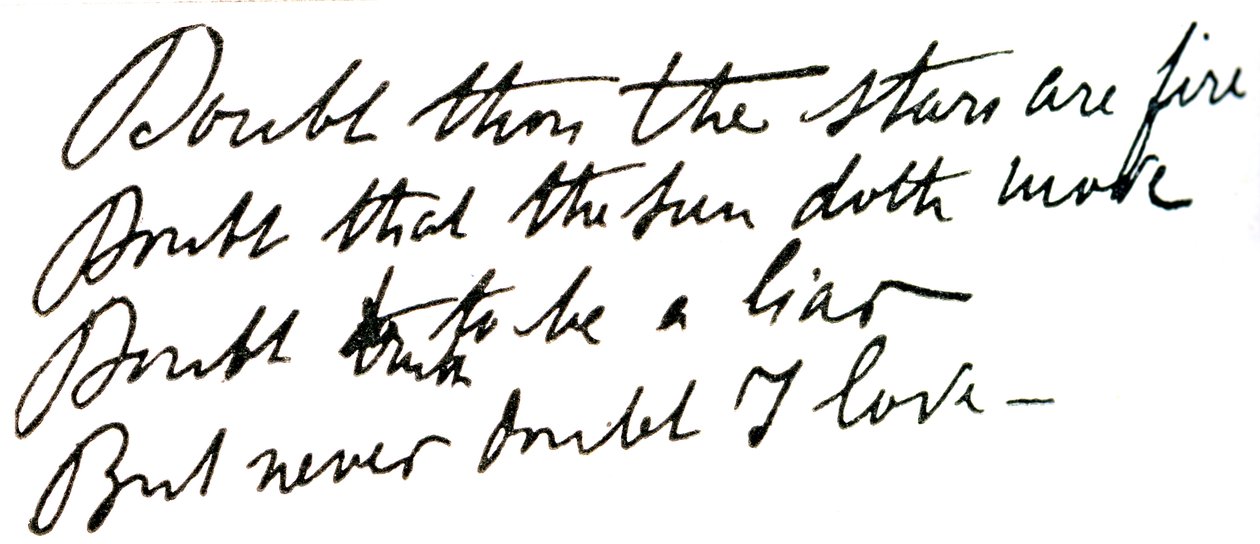 Doubt thou the stars are fire
Doubt that the sun doth move
Doubt truth to be a liar
But never doubt I love —